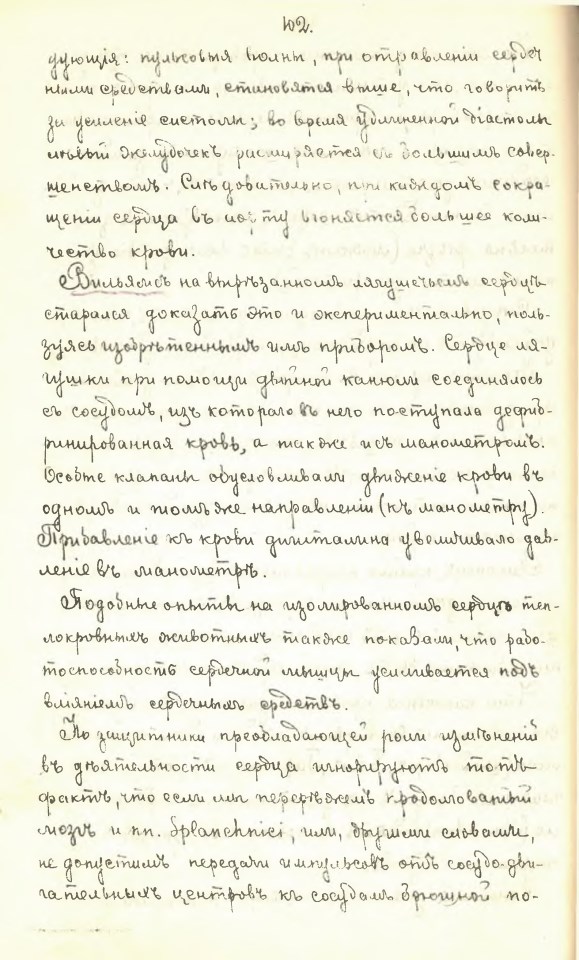 102.
дующія: пульсовыя волны, при отравленіи сердеч
ными средствами, становятся выше, что говоритъ
за усиленіе систолы; во время удлиненной діастолы
лѣвый желудочекъ расширяется съ большимъ совер-
шенствомъ. Слѣдовательно, при каждомъ сокра-
щеніи сердца въ аорту вгоняется большее коли-
чество крови.
Вильямсъ на вырѣзанномъ лягушечьемъ сердцѣ
старался доказать это и экспериментально, поль-
зуясь изобрѣтеннымъ имъ приборомъ. Сердце ля-
гушки при помощи двойной канюли соединялось
съ сосудомъ, изъ котораго въ него поступала дефиб-
ринированная кровь, а также и съ манометромъ.
Особые клапаны обусловливали движеніе крови въ
одномъ и томъ же направленіи (къ манометру).
Прибавленіе къ крови дигиталина увеличивало дав-
леніе въ манометрѣ.
Подобные опыты на изолированномъ сердцѣ теп-
локровныхъ животныхъ также показали, что рабо-
тоспособность сердечной мышцы усиливается подъ
вліяніемъ сердечныхъ средствъ.
Но защитники преобладающей роли измѣненій
въ дѣятельности сердца игнорируютъ тотъ
фактъ, что если мы перерѣжемъ продолговатый
мозгъ и nn. Splanchnici, или, другими словами,
не допустимъ передачи импульсовъ отъ сосудо-дви-
гательныхъ центровъ къ сосудамъ брюшной по-